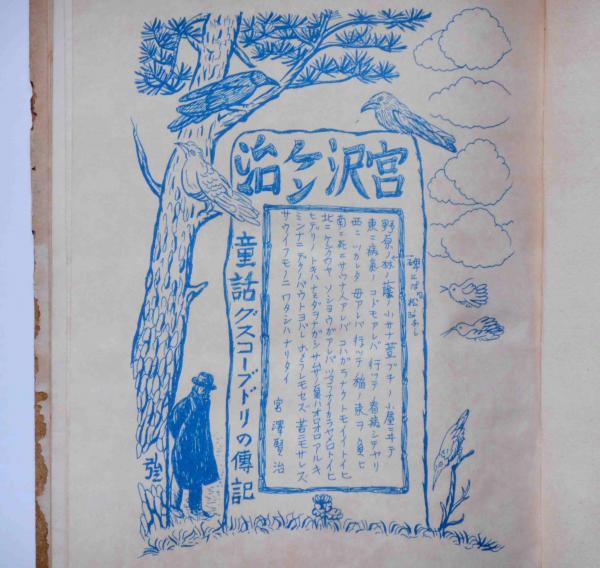 宮沢ケン治
野原ノ林ノ蔭ノ小サナ萱ブキノ小屋ニヰテ
東ニ病気ノコドモアレバ 行ッテ看病シテヤリ
西ニツカレタ母アレバ 行ッテ稲ノ束ヲ負ヒ
南ニ死ニサウナ人アレバ コハガラナクトモイイトイヒ
北ニケンクヮヤソショウガアレバ ツマラナイカラヤメロトイヒ
ヒデリノトキハナミダヲナガシ サムサノ夏ハオロオロアルキ
ミンナニデクノバウトヨバレ ホメラレモセズ 苦ニモサレズ
サウイフモノニワタシハナリタイ 宮澤賢治
童話グスコーブドリの傳記